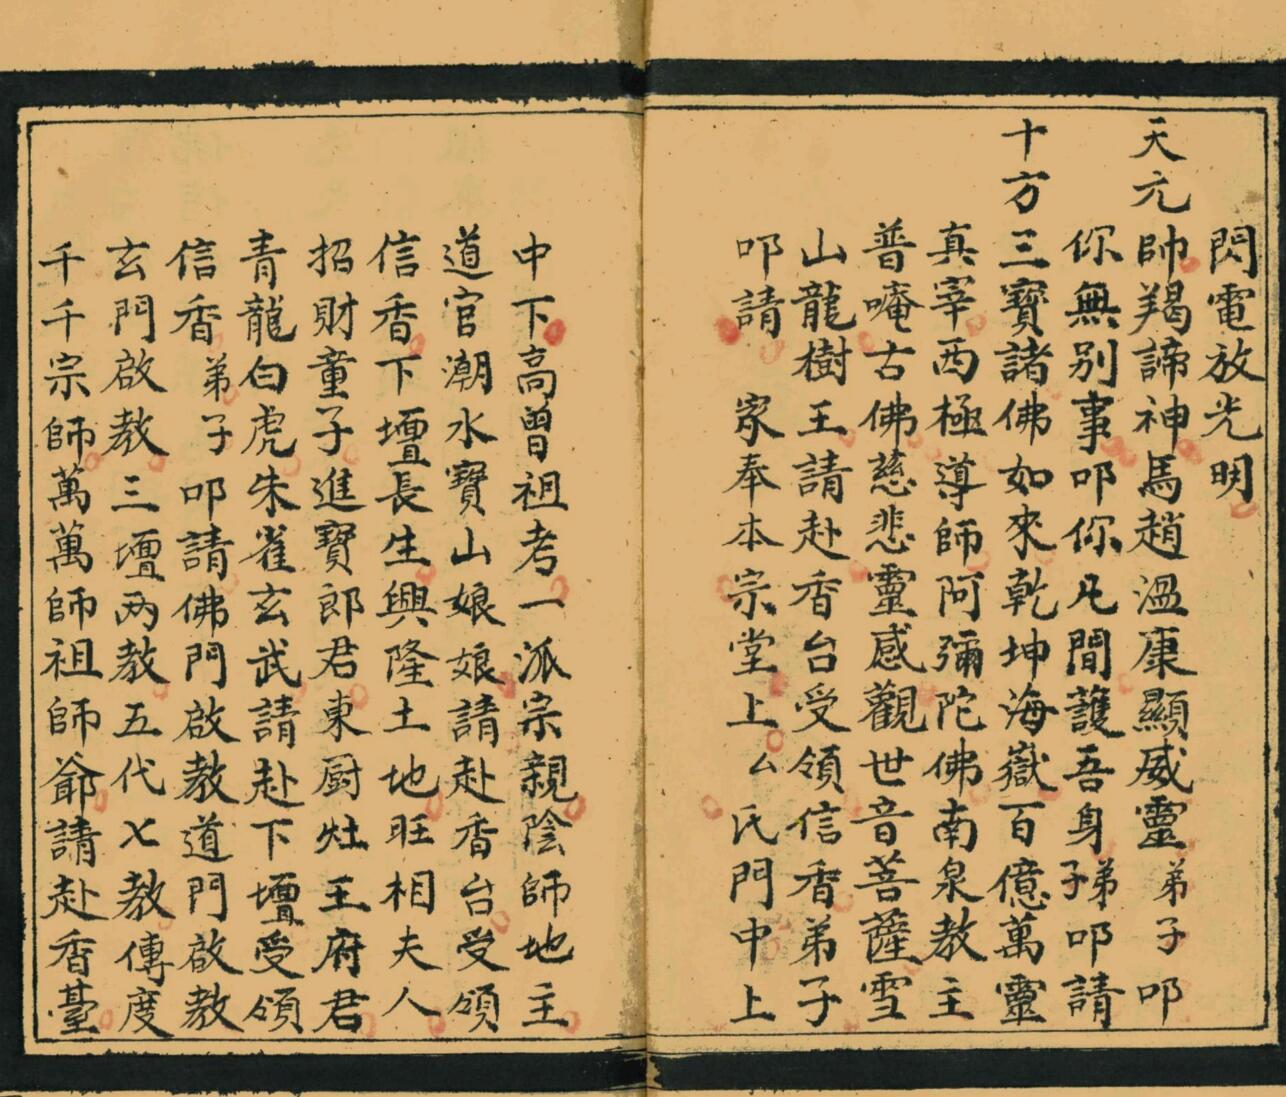 閃電放光明
天亢帥羯諦神馬趙溫康顯威靈弟子叩
你無別事叩你凡間護吾身弟子叩請
十方三寶諸佛如來乾坤海嶽百億萬靈
真宰西極導師阿彌陀佛南泉教主
普唵古佛慈悲靈感觀世音菩薩雪
山龍樹王請赴香台受領信香弟子
叩請 家奉本宗堂上厶氏門中上
中下高曾祖考一派宗親陰師地主
道官潮水寶山娘娘請赴香台受領
信香下壇長生興隆土地旺相夫人
招財童子進寶郎君東厨灶王府君
青龍白虎朱雀玄武請赴下壇受領
信香弟子叩請佛門啟教道門啟教
玄門啟教三壇两教五代七教傳度
千千宗師萬萬師祖師爺請赴香臺